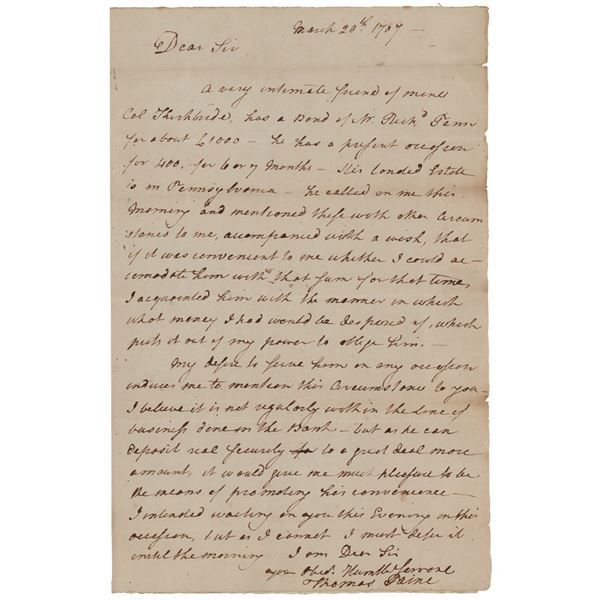 March 20th 1787 —
Dear Sir
A very intimate friend of mine
Col Kirkbride, has a Bond of Mr. Richd Penn
for about £1000 — he has a present occasion
for 400, for 6 or 7 Months — His landed Estate
is in Pennsylvania — he called on me this
Morning and mentioned these with other Circum
stances to me, accompanied with a wish, that
if it was convenient to me whether I could ac-
comodate him with that sum for that time,
I acquainted him with the manner in which
what money I had would be disposed of, which
puts it out of my power to oblige him. —
My desire to serve him on any occasion
induces me to mention this Circumstance to you —
I believe it is not regularly within the Line of
business done in the Bank — but as he can
deposit real Security to a great deal more
amount, it would give me much pleasure to be
the means of promoting his convenience —
I intended waiting on you this Evening on this
occasion, but as I cannot I must defer it
until the morning I am Dear Sir
your Obedt. Humble Servant
Thomas Paine